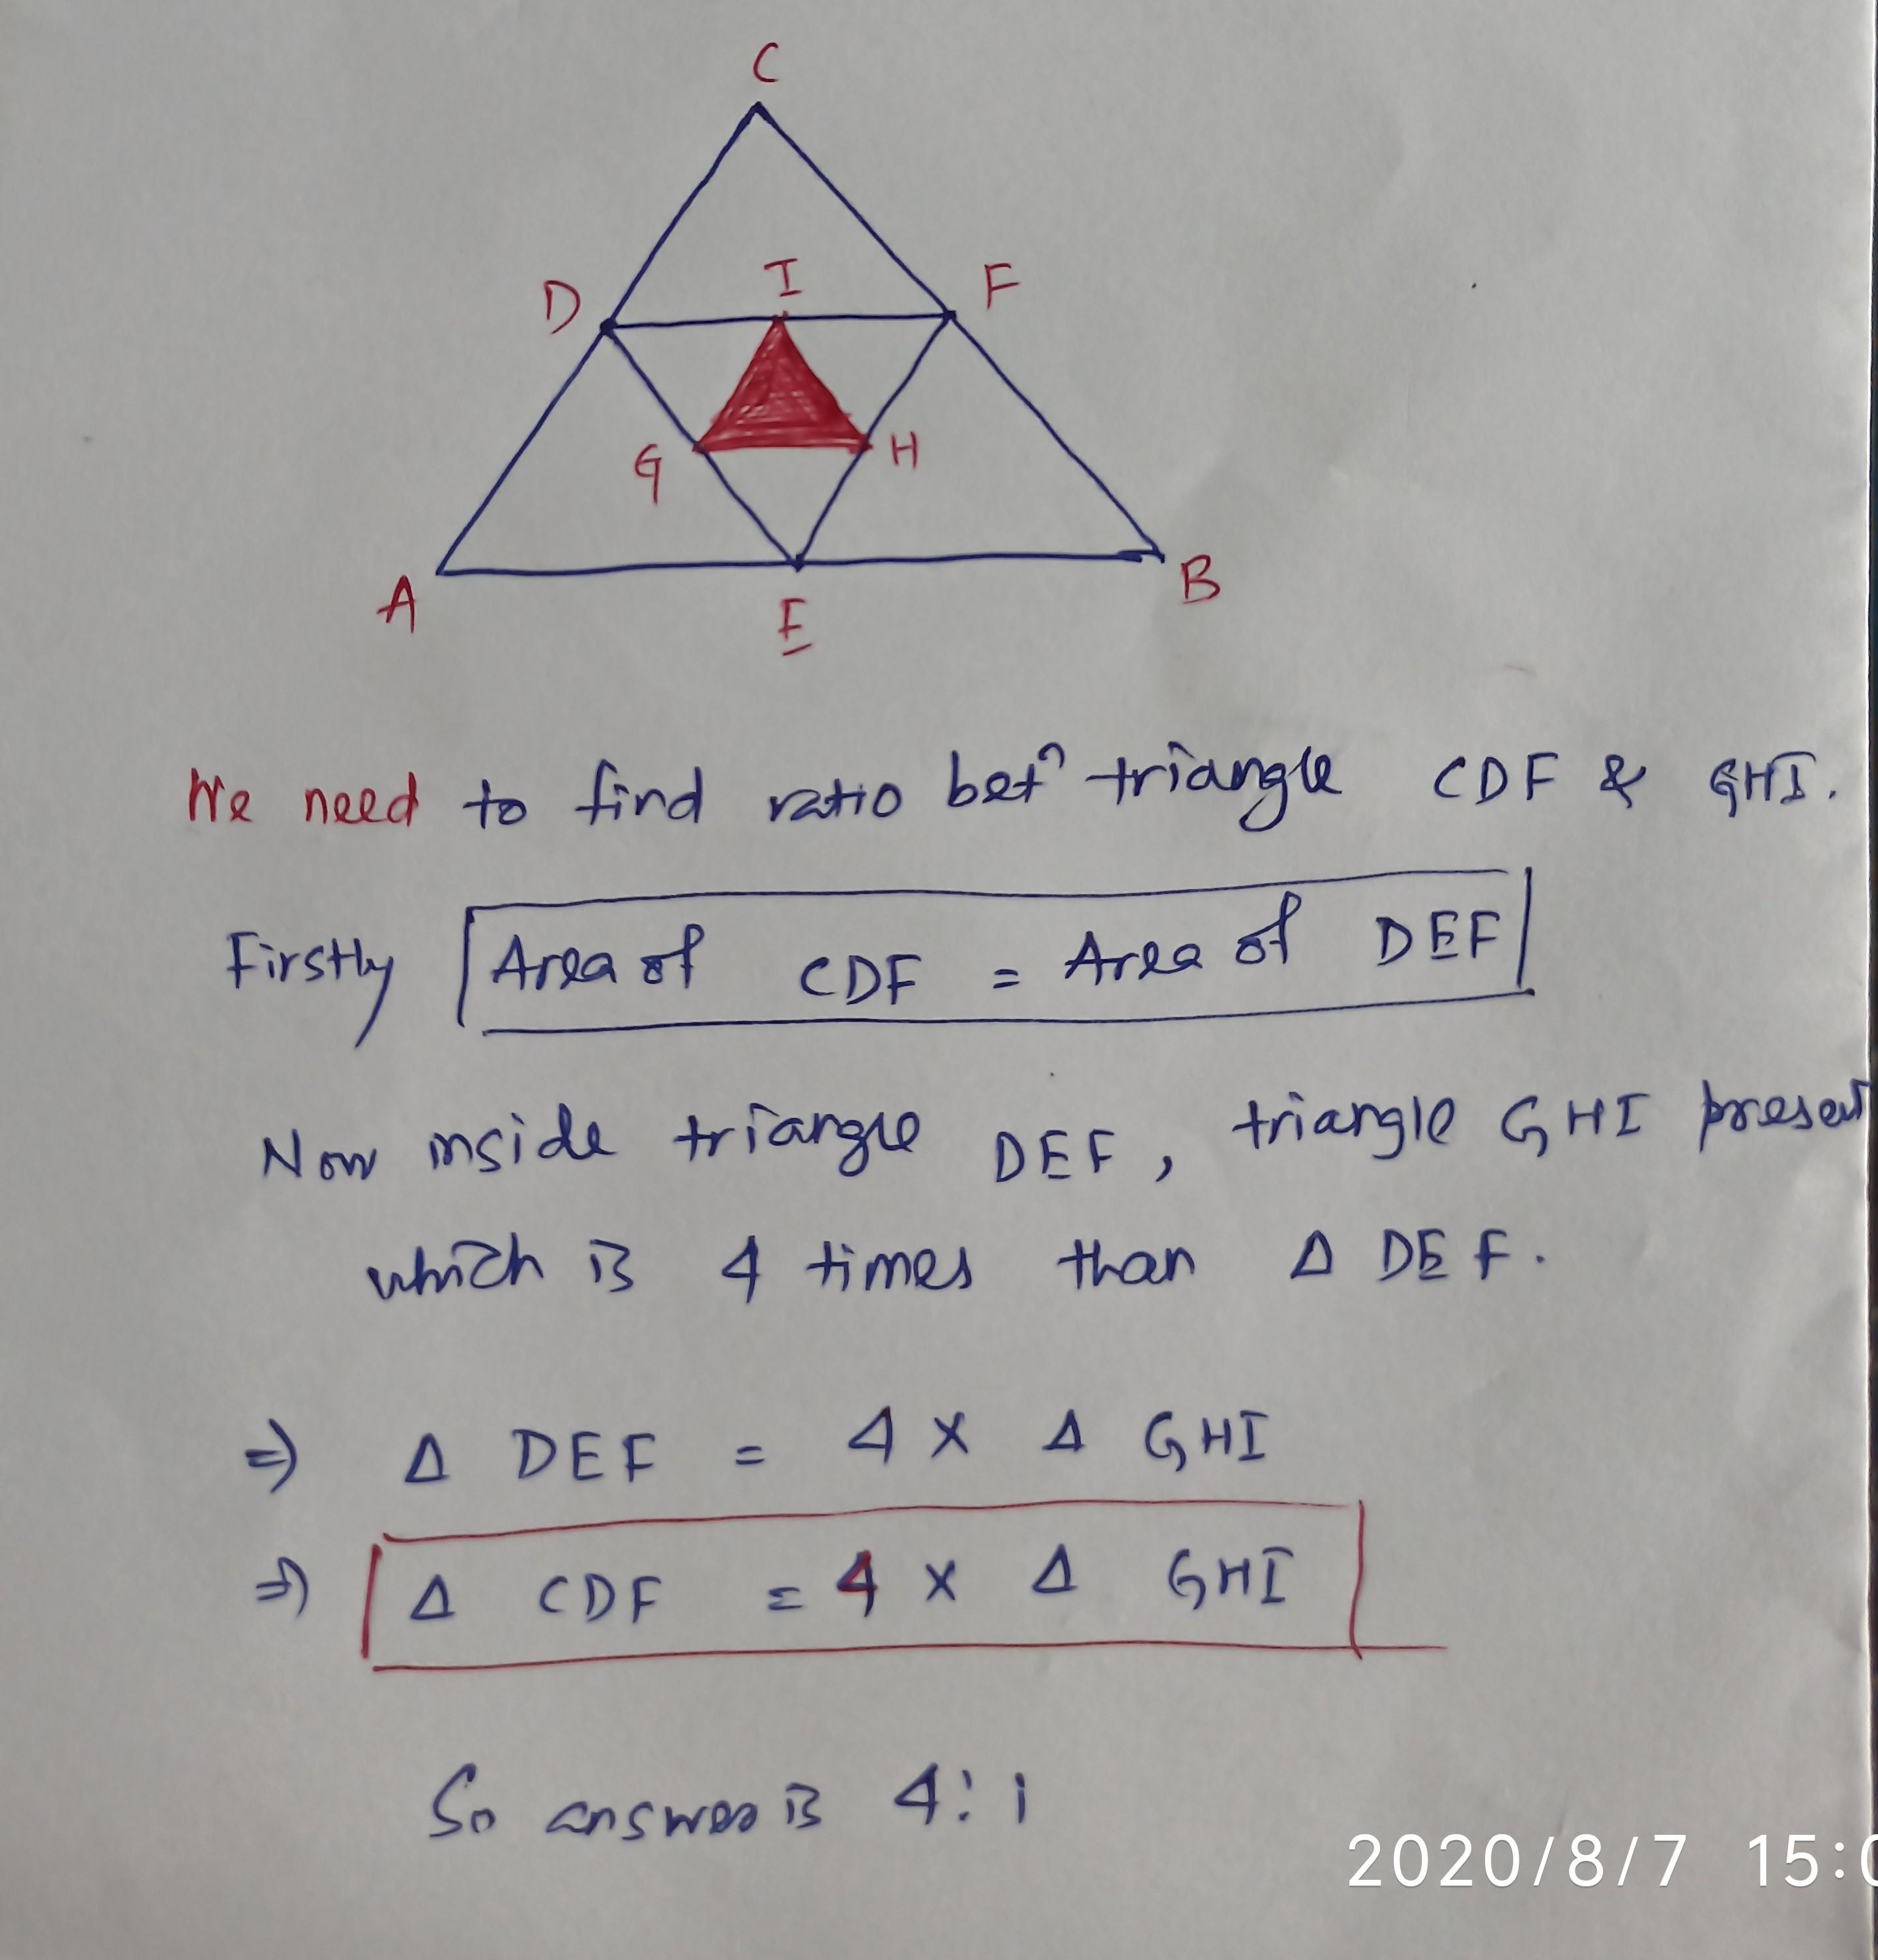 C
D
I
F
G
H
A
B
E
We need to find ratio betⁿ triangle CDF & GHI.
Firstly Area of CDF = Area of DEF
Now inside triangle DEF, triangle GHI present
which is 4 times than Δ DEF.
⇒ Δ DEF = 4 × Δ GHI
⇒ Δ CDF = 4 × Δ GHI
So answer is 4:1
2020/8/7 15:0